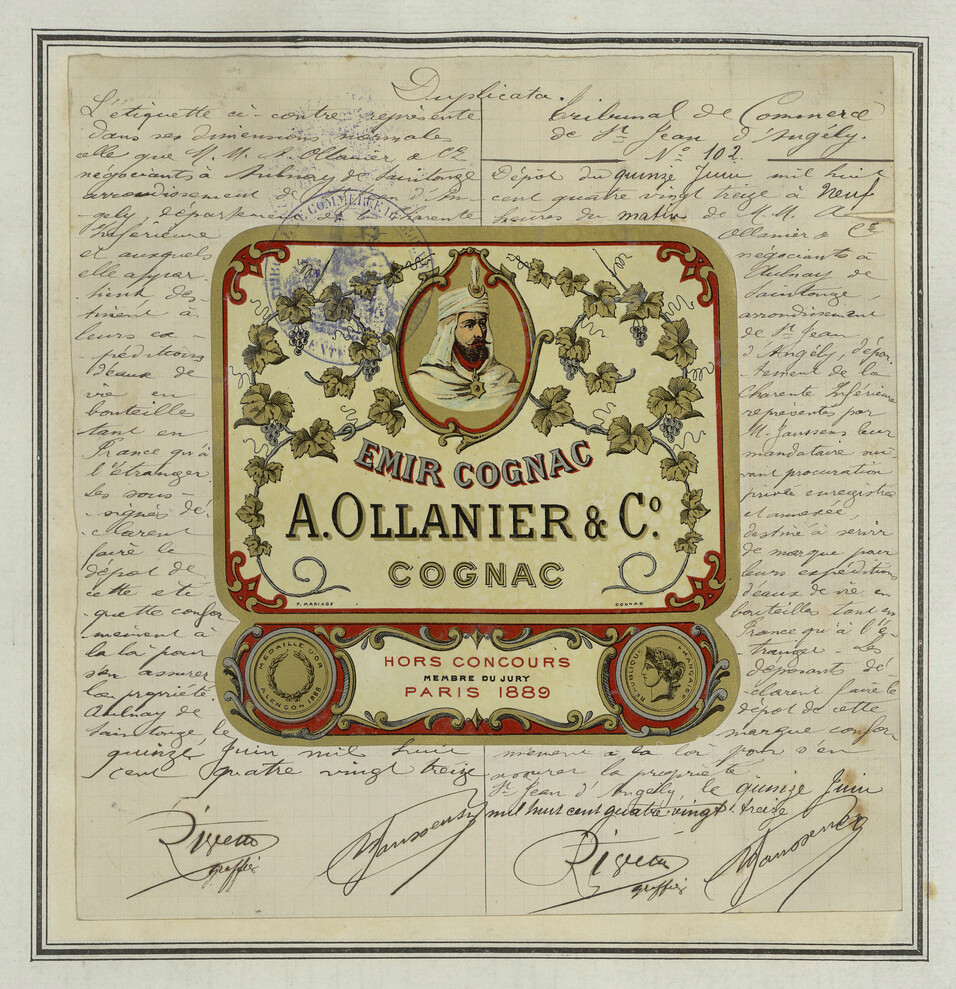 Duplicata.
L'étiquette ci-contre représente
dans ses dimensions normales
celle que M. M. A. Ollanier & Cie
négociants à Aulnay de Saintonge
arrondissement de d'An-
gély, département de la Charente
Inférieure
et auxquels
elle appar
tient, des-
tinent à
leurs ex-
péditions
d'eaux de
vie en
bouteille
tant en
France qu'à
l'étranger
Les sous-
signés dé-
clarent
faire le
dépôt de
cette éti-
quette confor
mément à
la loi pour
s'en assurer
la propriété
Aulnay de
Saintonge le
quinze Juin mil huit
cent quatre vingt treize
greffier
Tribunal de Commerce
de St Jean d'Angély.
No 102.
Dépôt du quinze Juin mil huit
cent quatre vingt treize à neuf
heures du matin de M. M. A
Ollanier & Cie
négociants à
Aulnay de
Saintonge,
arrondissement
de St Jean
d'Angély, dépar
tement de la
Charente Inférieure
représentés par
M. Janssens leur
mandataire sui-
vant procuration
privée enregistrée
et annexée,
destiné à servir
de marque pour
leurs expéditions
d'eaux de vie en
bouteilles tant en
France qu'à l'é-
tranger. Les
déposants dé-
clarent faire le
dépôt de cette
marque confor-
mément à la loi pour s'en
assurer la propriété
St Jean d'Angély, le quinze Juin
mil huit cent quatre vingt treize
greffier
EMIR COGNAC
A. OLLANIER & Co.
COGNAC
F. MARIAGE
COGNAC
MÉDAILLE D'OR
ALENÇON 1888
HORS CONCOURS
MEMBRE DU JURY
PARIS 1889
RÉPUBLIQUE FRANÇAISE